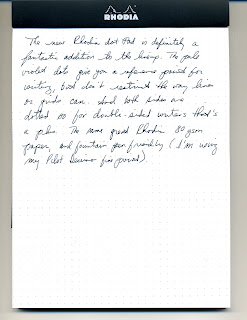 RHODIA
The new Rhodia dot Pad is definitely a
fantastic addition to the lineup. The pale
violet dots give you a reference point for
writing, but don't restrict the way lines
or grids can. And both sides are
dotted so for double-sided writers that's
a plus. The same great Rhodia 80 gsm
paper, and fountain pen friendly (I'm using
my Pilot fine point)